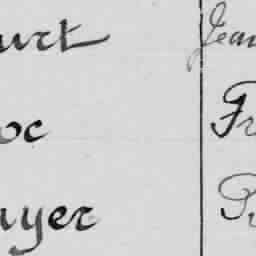 urt Jean
oc Fr
uyer Pr